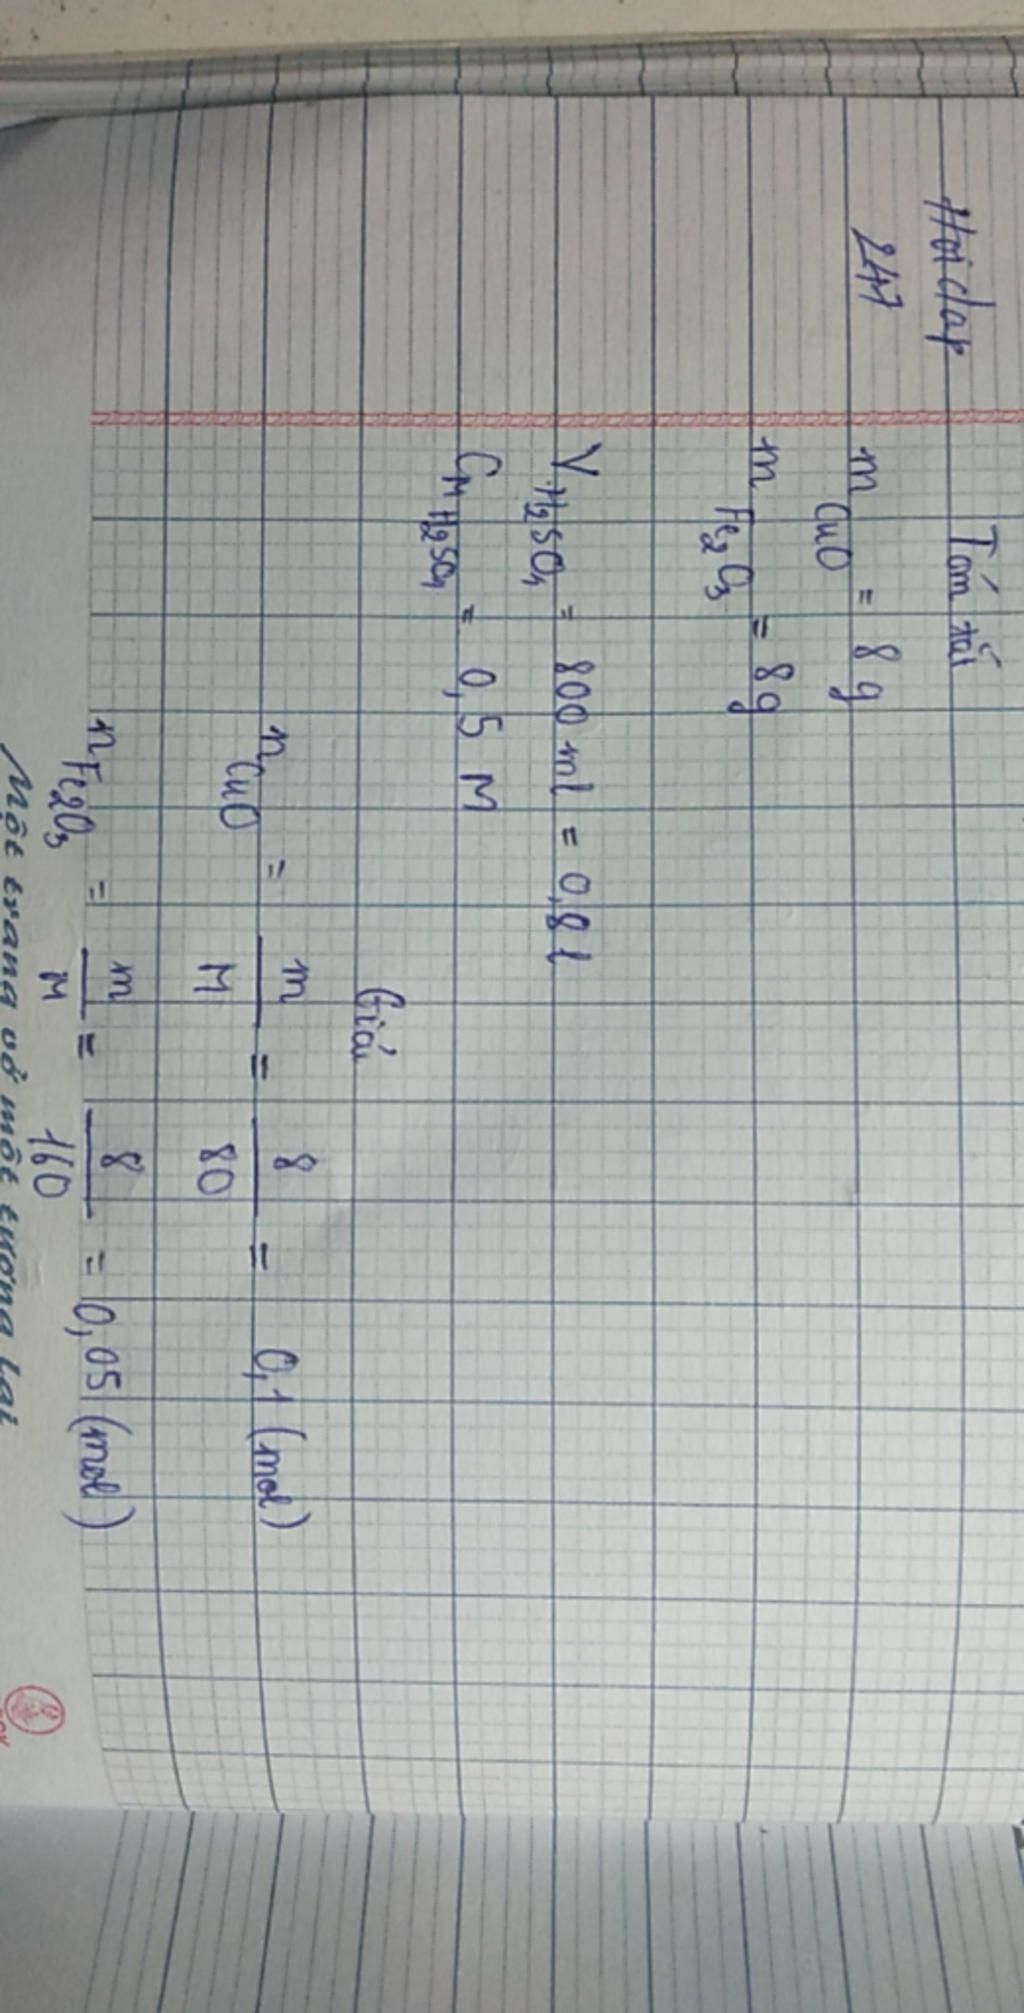 Hoidap
247
Tóm tắt
m CuO = 8 g
m Fe₂O₃ = 8g
V H₂SO₄ = 800 ml = 0,8 l
CM H₂SO₄ = 0,5 M
Giải
n CuO = m/M = 8/80 = 0,1 (mol)
n Fe₂O₃ = m/M = 8/160 = 0,05 (mol)
Một trang vở một tương lai